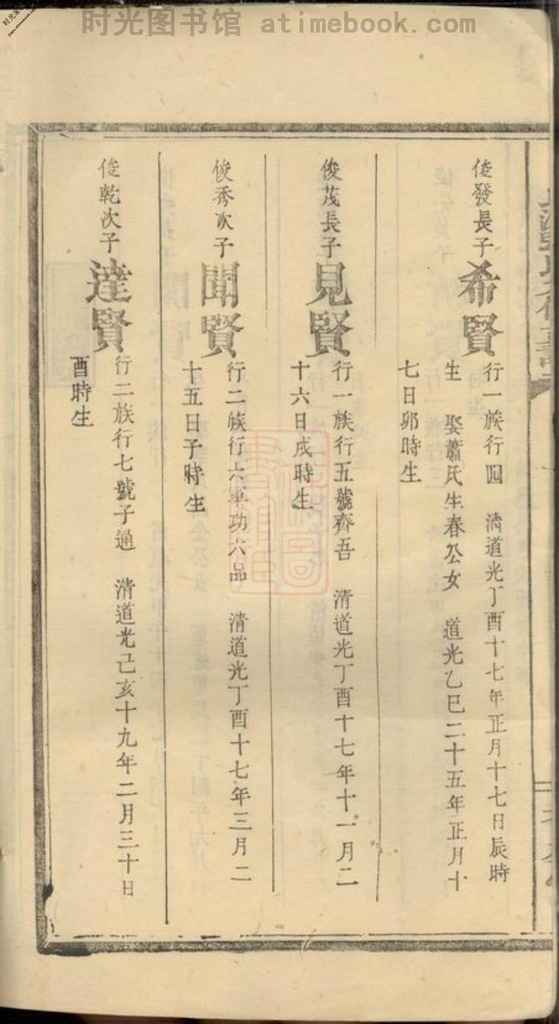 时光图书馆 atimebook.com
俊發長子
希賢
行一族行四 清道光丁酉十七年正月十七日辰時
生 娶蕭氏生春公女 道光乙巳二十五年正月十
七日卯時生
俊茂長子
見賢
行一族行五號齊吾 清道光丁酉十七年十一月二
十六日戌時生
俊秀次子
聞賢
行二族行六軍功六品 清道光丁酉十七年三月二
十五日子時生
俊乾次子
達賢
行二族行七號子通 清道光己亥十九年二月三十日
酉時生